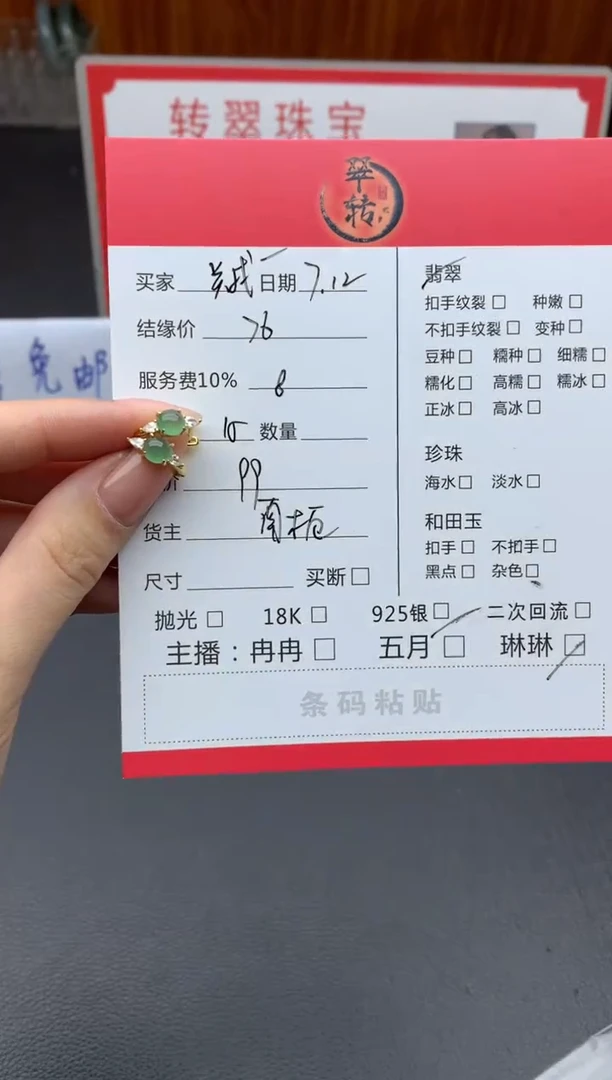 转翠珠宝
翠转
免邮
买家 日期 7.12
结缘价 76
服务费10% 8
15 数量
价 99
货主 南栀
尺寸 买断□
翡翠
扣手纹裂□ 种嫩□
不扣手纹裂□ 变种□
豆种□ 糯种□ 细糯□
糯化□ 高糯□ 糯冰□
正冰□ 高冰□
珍珠
海水□ 淡水□
和田玉
扣手□ 不扣手□
黑点□ 杂色□
抛光□ 18K□ 925银□ 二次回流□
主播：冉冉□ 五月□ 琳琳□
条码粘贴